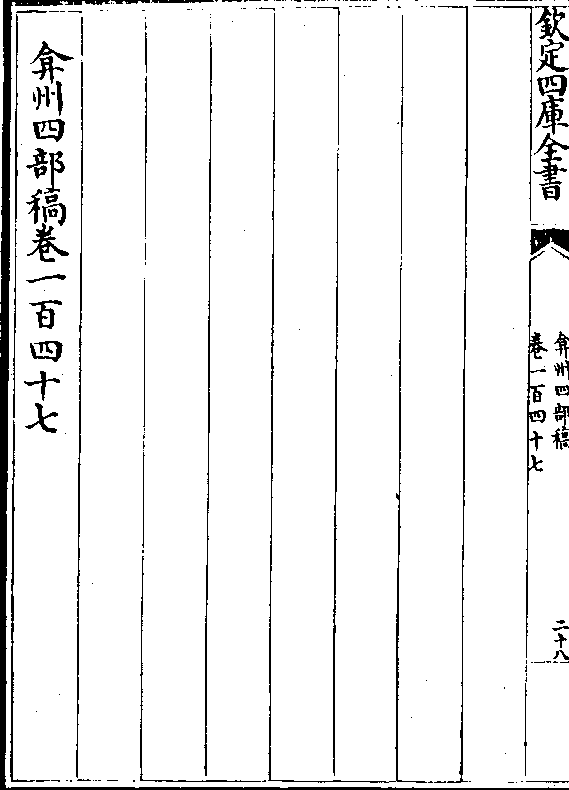 欽定四庫全書
弇州四部稿
卷一百四十七
二十八
弇州四部稿卷一百四十七